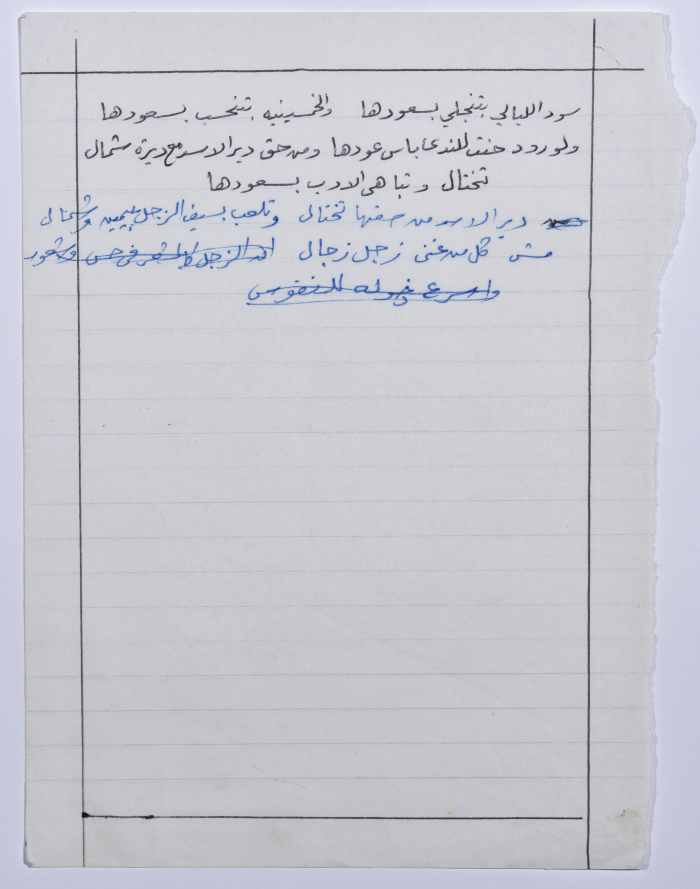 سود الليالي بتنجلي بسعودها والخمسينيه بتنحسب بسعودها
ولورود حنت للندى عاباس عودها ومن حق دير الاسد مع ديرة شمال
تختال وتباهى الادب بسعودها
دير الاسد من حقها تختال وتلعب بسيف الزجل بيمين وشمال
مش كل من غنى زجل زجال الزجل في حس وشعور
واسرع للنفوس